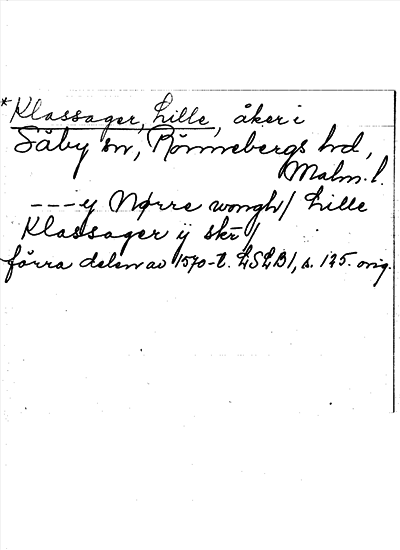 *Klassager, Lille, åker i
Såby sn, Rönnebergs hd,
Malm. l.
---y Nørre wongh/ Lille
Klassager ij skr /
förra delen av 1570-t. LSLB1, s. 125. orig.